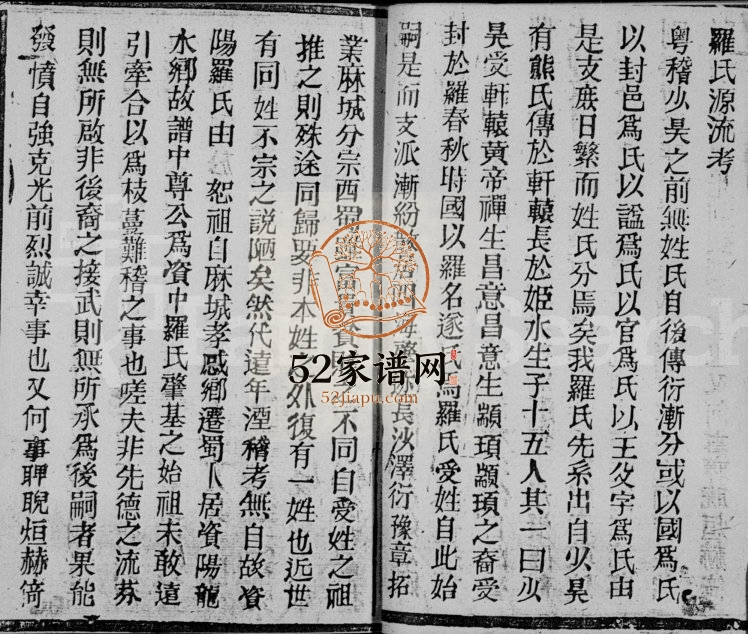 羅氏源流考
粵稽少昊之前無姓氏自後傳衍漸分或以國爲氏
以封邑爲氏以謚爲氏以官爲氏以王父字爲氏由
是支庶日繁而姓氏分焉矣我羅氏先系出自少昊
有熊氏傳於軒轅長於姬水生子十五人其一曰少
昊受軒轅黃帝禪生昌意昌意生顓頊顓頊之裔受
封於羅春秋時國以羅名遂氏焉羅氏受姓自此始
嗣是而支派漸紛散居四海長沙澤衍豫章拓
業麻城分宗西蜀雖富貴貧不同自受姓之祖
推之則殊途同歸要非本姓外復有一姓也近世
有同姓不宗之説陋矣然代遠年湮稽考無自故資
陽羅氏由 恕祖自麻城孝感鄉遷蜀卜居資陽龍
水鄉故譜中尊公爲資中羅氏肇基之始祖未敢遠
引牽合以爲枝蔓難稽之事也嗟夫非先德之流芬
則無所啟非後裔之接武則無所承爲後嗣者果能
發憤自強克光前烈誠幸事也又何事睥睨烜赫倚
52家谱网
52jiapu.com